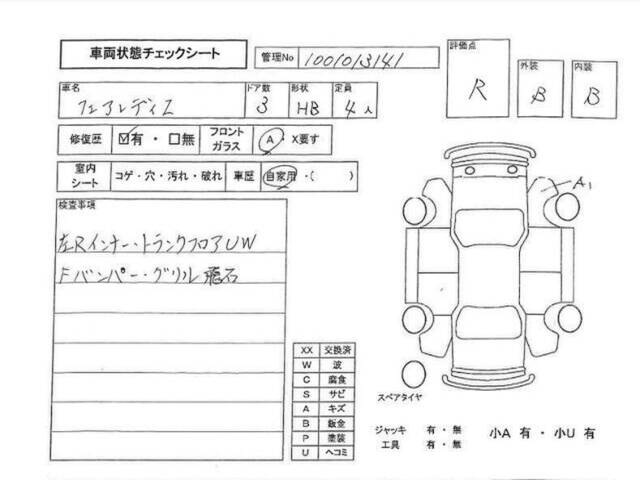 車両状態チェックシート
管理No 1001013141
評価点 R
外装 B
内装 B
車名 フェアレディZ
ドア数 3
形状 HB
定員 4人
修復歴 ☑有・□無
フロントガラス A・X要す
室内シート コゲ・穴・汚れ・破れ
車歴 自家用・( )
検査事項
左Rインナー・トランクフロアUW
Fバンパー・グリル飛石
A1
XX 交換済
W 波
C 腐食
S サビ
A キズ
B 鈑金
P 塗装
U ヘコミ
スペアタイヤ
ジャッキ 有・無
工具 有・無
小A 有・小U 有